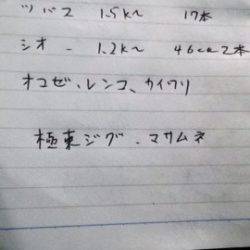 ツバス 1.5k〜 17本
シオ - 1.2k〜 46cm2本
オコゼ、レンコ、カイワリ
極東ジグ、マサムネ